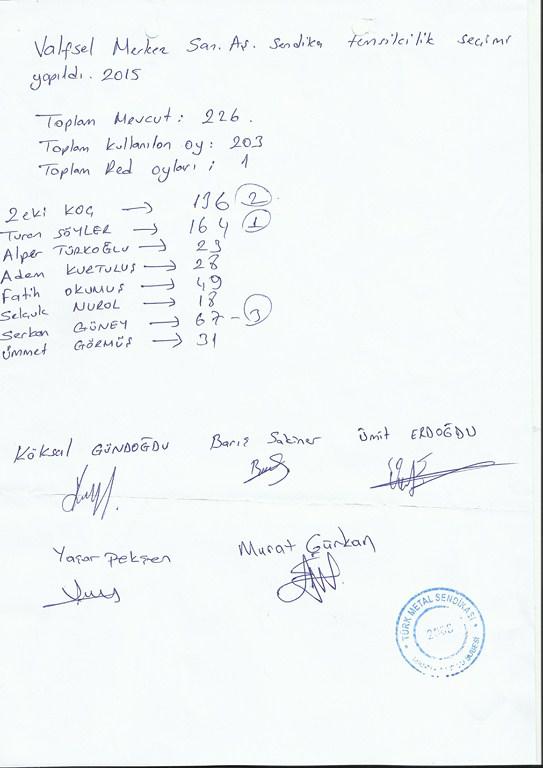 Valfsel Merkez San. Aş. Sendika temsilcilik seçimi
yapıldı. 2015
Toplam Mevcut: 226.
Toplam kullanılan oy: 203
Toplam Red oyları: 1
Zeki KOÇ → 136 2
Turan SÖYLER → 164 1
Alper TÜRKOĞLU → 23
Adem KURTULUŞ → 28
Fatih OKUMUŞ → 49
Selçuk NUROL → 18
Serkan GÜNEY → 67 - 3
Ümmet GÖRMÜŞ → 31
Köksal GÜNDOĞDU Barış Sakiner Ümit ERDOĞDU
Yaşar Pekşen Murat Gürkan
TÜRK METAL SENDİKASI
ŞUBESİ